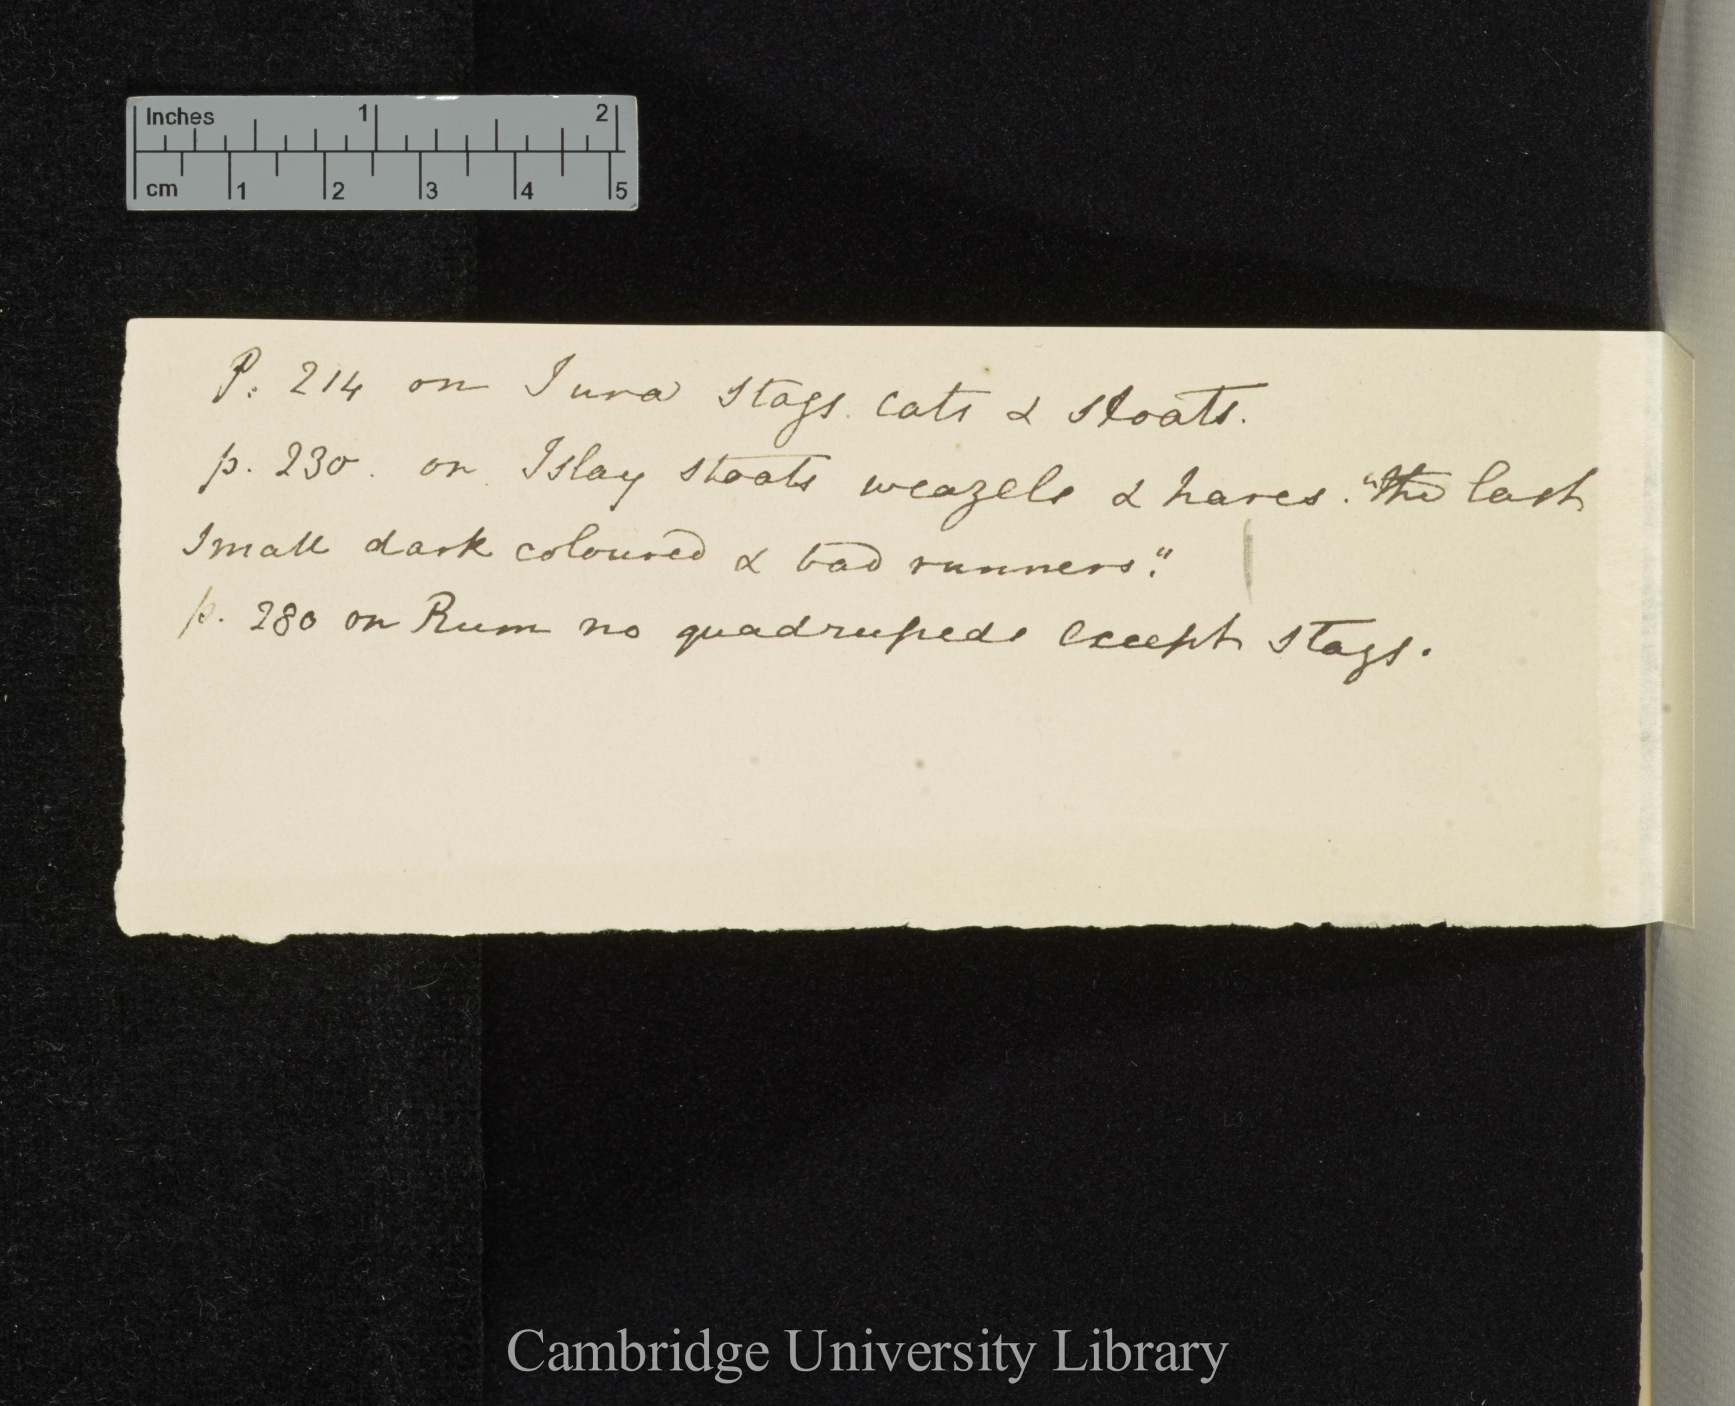 Inches 1 2
cm 1 2 3 4 5
P. 214 on Jura stags. cats & stoats.
p. 230. on Islay stoats weazels & hares. "the last
small dark coloured & bad runners."
p. 280 on Rum no quadrupeds except stags.
Cambridge University Library